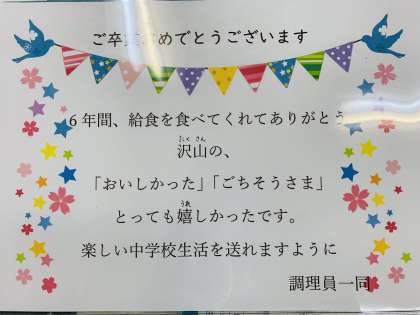 ご卒業おめでとうございます
6年間、給食を食べてくれてありがとう
たくさん
沢山の、
「おいしかった」「ごちそうさま」
うれ
とっても嬉しかったです。
楽しい中学校生活を送れますように
調理員一同